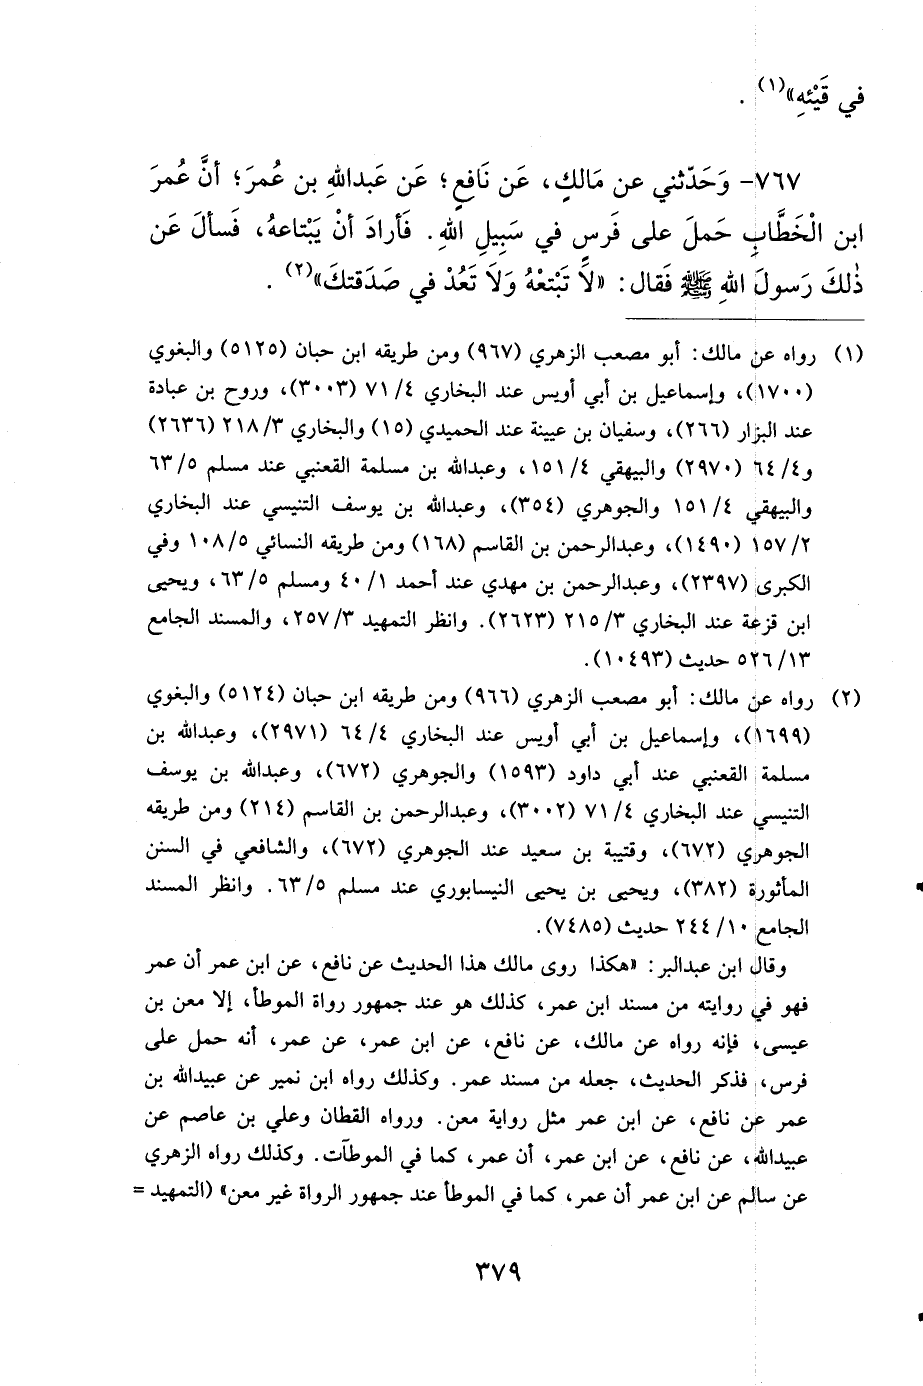 في قَيْئِهِ»(١) .
٧٦٧- وَحَدّثني عن مَالكٍ، عَن نَافعٍ؛ عَن عَبدالله بن عُمرَ؛ أنَّ عُمرَ
ابن الْخَطَّابِ حَملَ على فَرسٍ في سَبِيلِ اللهِ. فَأرادَ أنْ يَبْتاعهُ، فَسألَ عَن
ذٰلكَ رَسولَ اللهِ ﷺ فَقال: «لاَ تَبْتعْهُ وَلاَ تَعُدْ في صَدَقتكَ»(٢) .
(١) رواه عن مالك: أبو مصعب الزهري (٩٦٧) ومن طريقه ابن حبان (٥١٢٥) والبغوي
(١٧٠٠)، وإسماعيل بن أبي أويس عند البخاري ٤/ ٧١ (٣٠٠٣)، وروح بن عبادة
عند البزار (٢٦٦)، وسفيان بن عيينة عند الحميدي (١٥) والبخاري ٣/ ٢١٨ (٢٦٣٦)
و٤/ ٦٤ (٢٩٧٠) والبيهقي ٤/ ١٥١، وعبدالله بن مسلمة القعنبي عند مسلم ٥/ ٦٣
والبيهقي ٤/ ١٥١ والجوهري (٣٥٤)، وعبدالله بن يوسف التنيسي عند البخاري
٢/ ١٥٧ (١٤٩٠)، وعبدالرحمن بن القاسم (١٦٨) ومن طريقه النسائي ٥/ ١٠٨ وفي
الكبرى (٢٣٩٧)، وعبدالرحمن بن مهدي عند أحمد ١/ ٤٠ ومسلم ٥/ ٦٣، ويحيى
ابن قزعة عند البخاري ٣/ ٢١٥ (٢٦٢٣). وانظر التمهيد ٣/ ٢٥٧، والمسند الجامع
١٣/ ٥٢٦ حديث (١٠٤٩٣).
(٢) رواه عن مالك: أبو مصعب الزهري (٩٦٦) ومن طريقه ابن حبان (٥١٢٤) والبغوي
(١٦٩٩)، وإسماعيل بن أبي أويس عند البخاري ٤/ ٦٤ (٢٩٧١)، وعبدالله بن
مسلمة القعنبي عند أبي داود (١٥٩٣) والجوهري (٦٧٢)، وعبدالله بن يوسف
التنيسي عند البخاري ٤/ ٧١ (٣٠٠٢)، وعبدالرحمن بن القاسم (٢١٤) ومن طريقه
الجوهري (٦٧٢)، وقتيبة بن سعيد عند الجوهري (٦٧٢)، والشافعي في السنن
المأثورة (٣٨٢)، ويحيى بن يحيى النيسابوري عند مسلم ٥/ ٦٣. وانظر المسند
الجامع ١٠/ ٢٤٤ حديث (٧٤٨٥).
وقال ابن عبدالبر: «هكذا روى مالك هذا الحديث عن نافع، عن ابن عمر أن عمر
فهو في روايته من مسند ابن عمر، كذلك هو عند جمهور رواة الموطأ، إلا معن بن
عيسى، فإنه رواه عن مالك، عن نافع، عن ابن عمر، عن عمر، أنه حمل على
فرس، فذكر الحديث، جعله من مسند عمر. وكذلك رواه ابن نمير عن عبيدالله بن
عمر عن نافع، عن ابن عمر مثل رواية معن. ورواه القطان وعلي بن عاصم عن
عبيدالله، عن نافع، عن ابن عمر، أن عمر، كما في الموطآت. وكذلك رواه الزهري
عن سالم عن ابن عمر أن عمر، كما في الموطأ عند جمهور الرواة غير معن» (التمهيد =
٣٧٩